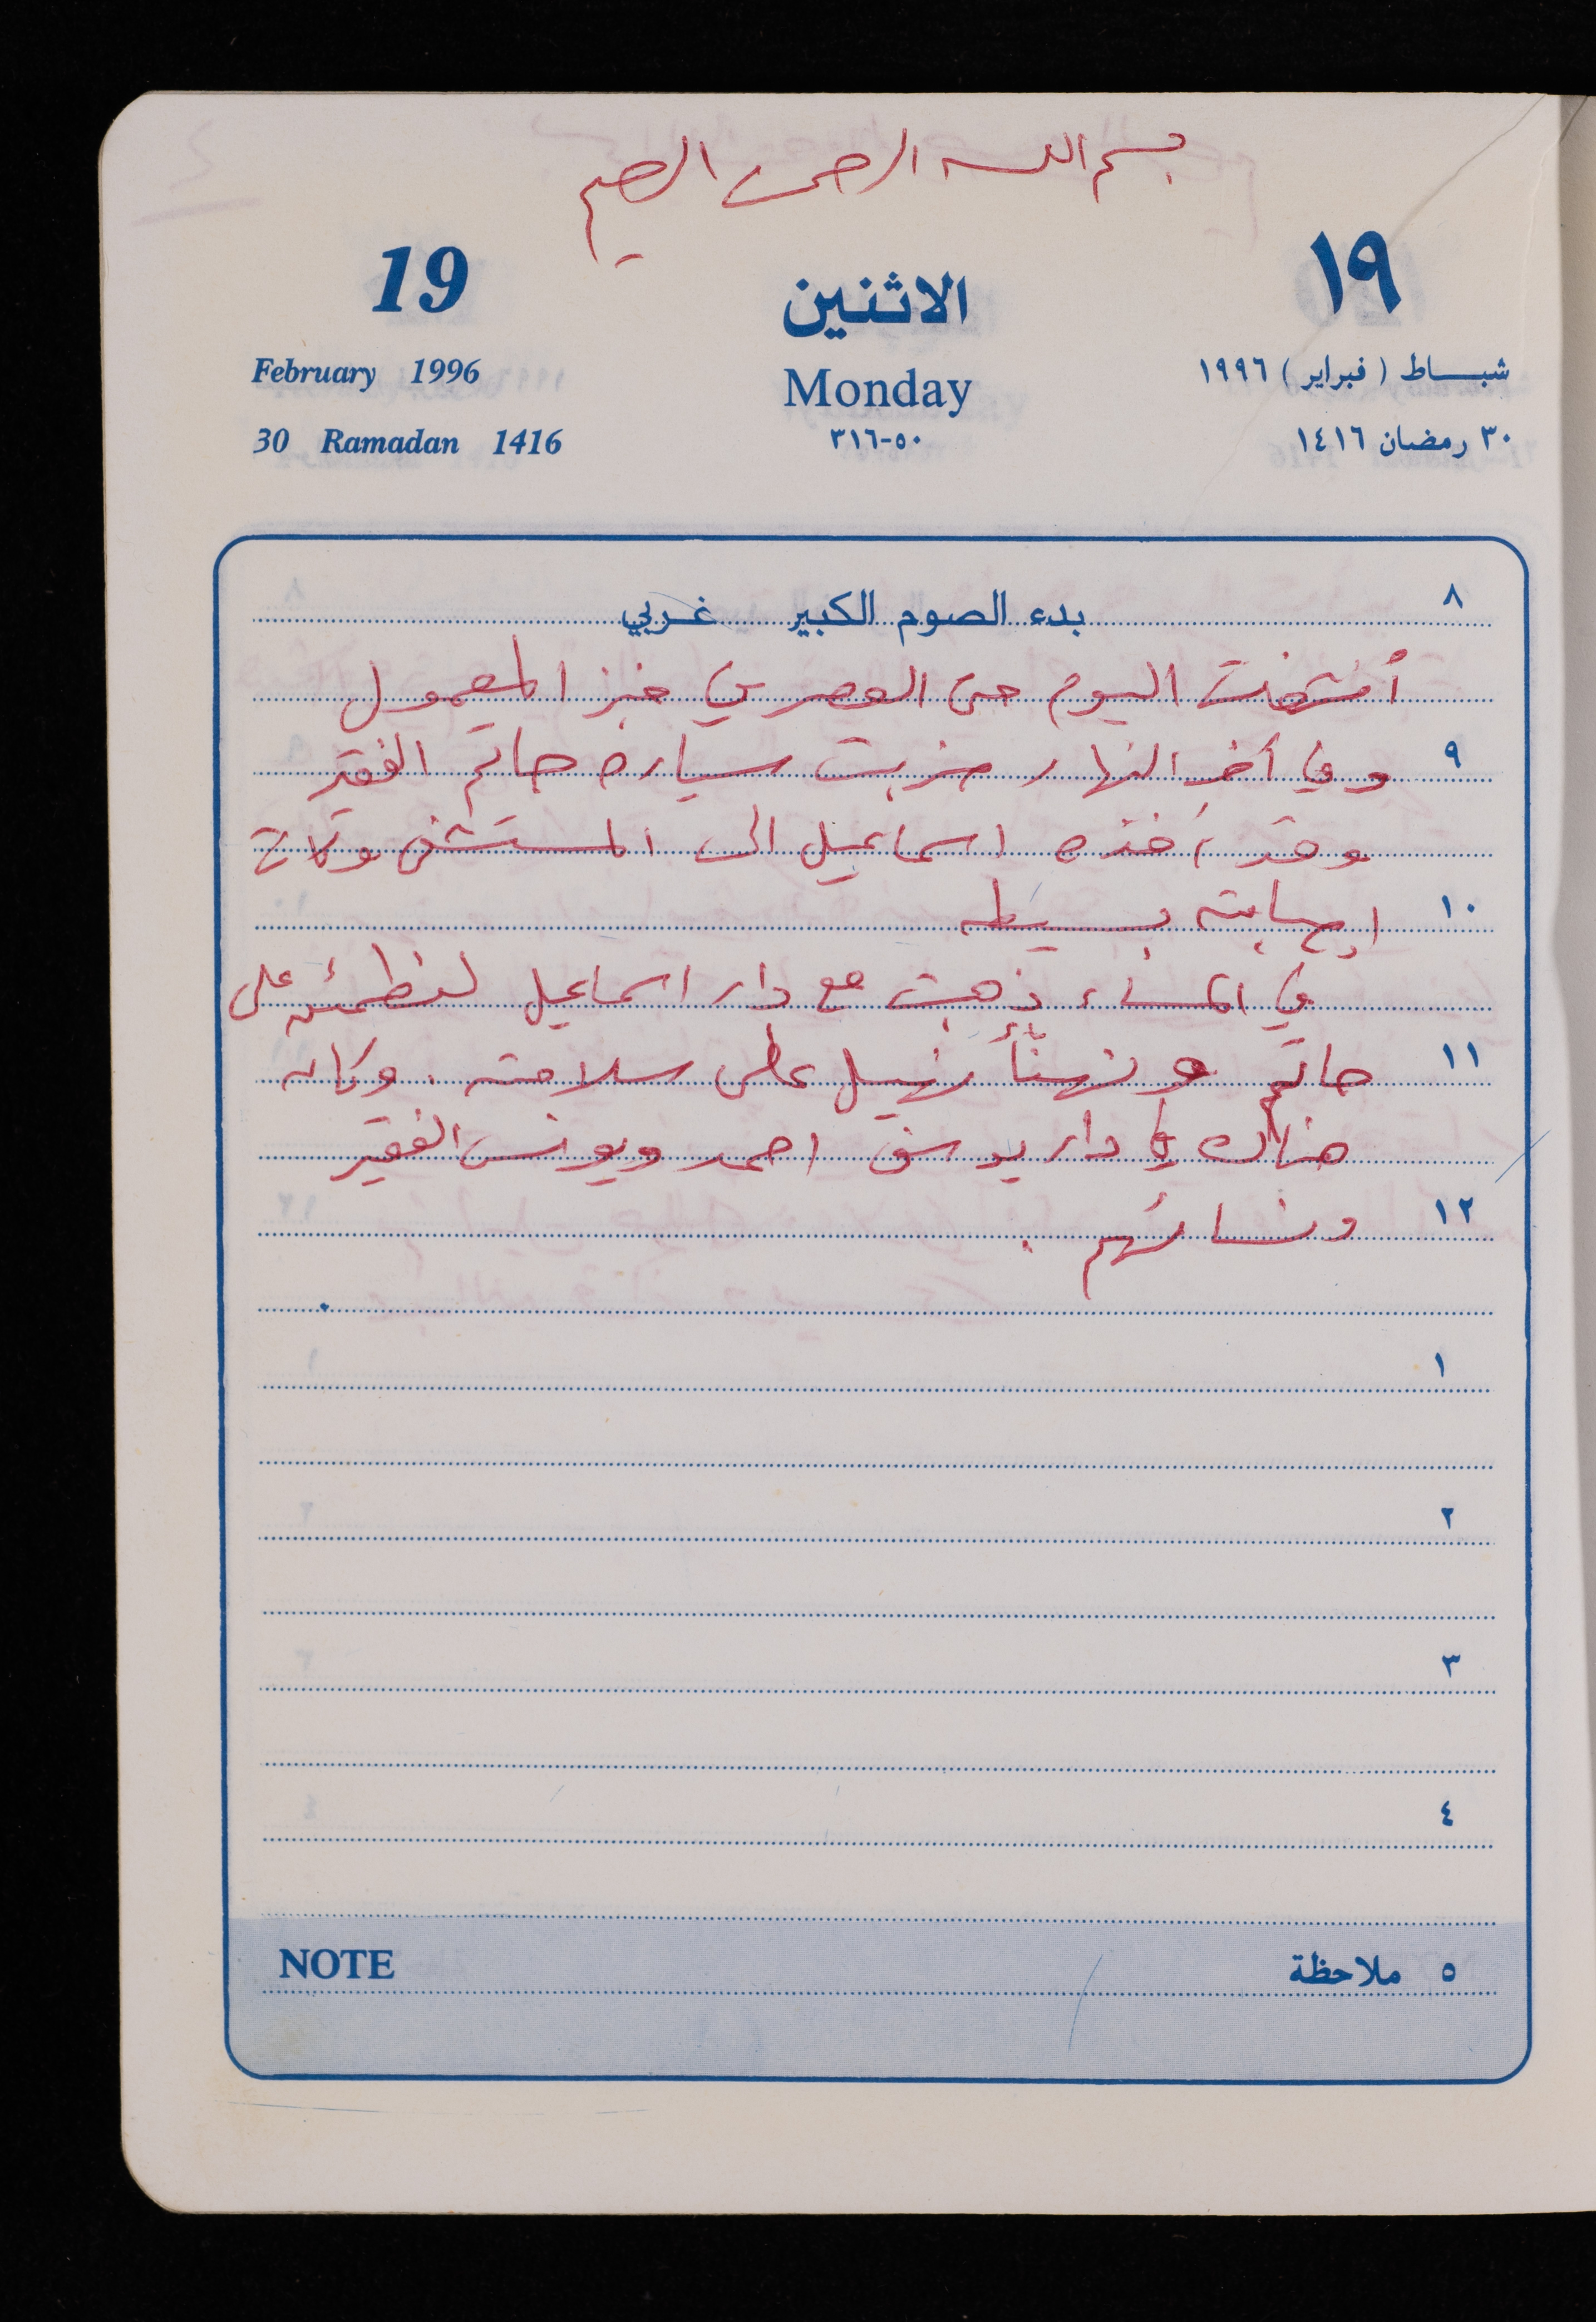 بسم الله الرحمن الرحيم
19 الاثنين ١٩
February 1996 Monday شباط (فبراير) ١٩٩٦
30 Ramadan 1416 ٥٠-٣١٦ ٣٠ رمضان ١٤١٦
٨ بدء الصوم الكبير غربي
اليوم حتى العصر في خبز المعمول
٩ وفي آخر النهار ضربت سياره حاتم الفقير
وقد أخذه اسماعيل الى المستشفى وكانت
١٠ إصابته بسيطه
في المساء ذهبت مع دار اسماعيل لنطمئن على
١١ حاتم ونهنأ نهيل على سلامته. وكان
هناك دار يوسف احمد ويونس الفقير
١٢ ونسائهم.
١
٢
٣
٤
NOTE ٥ ملاحظة